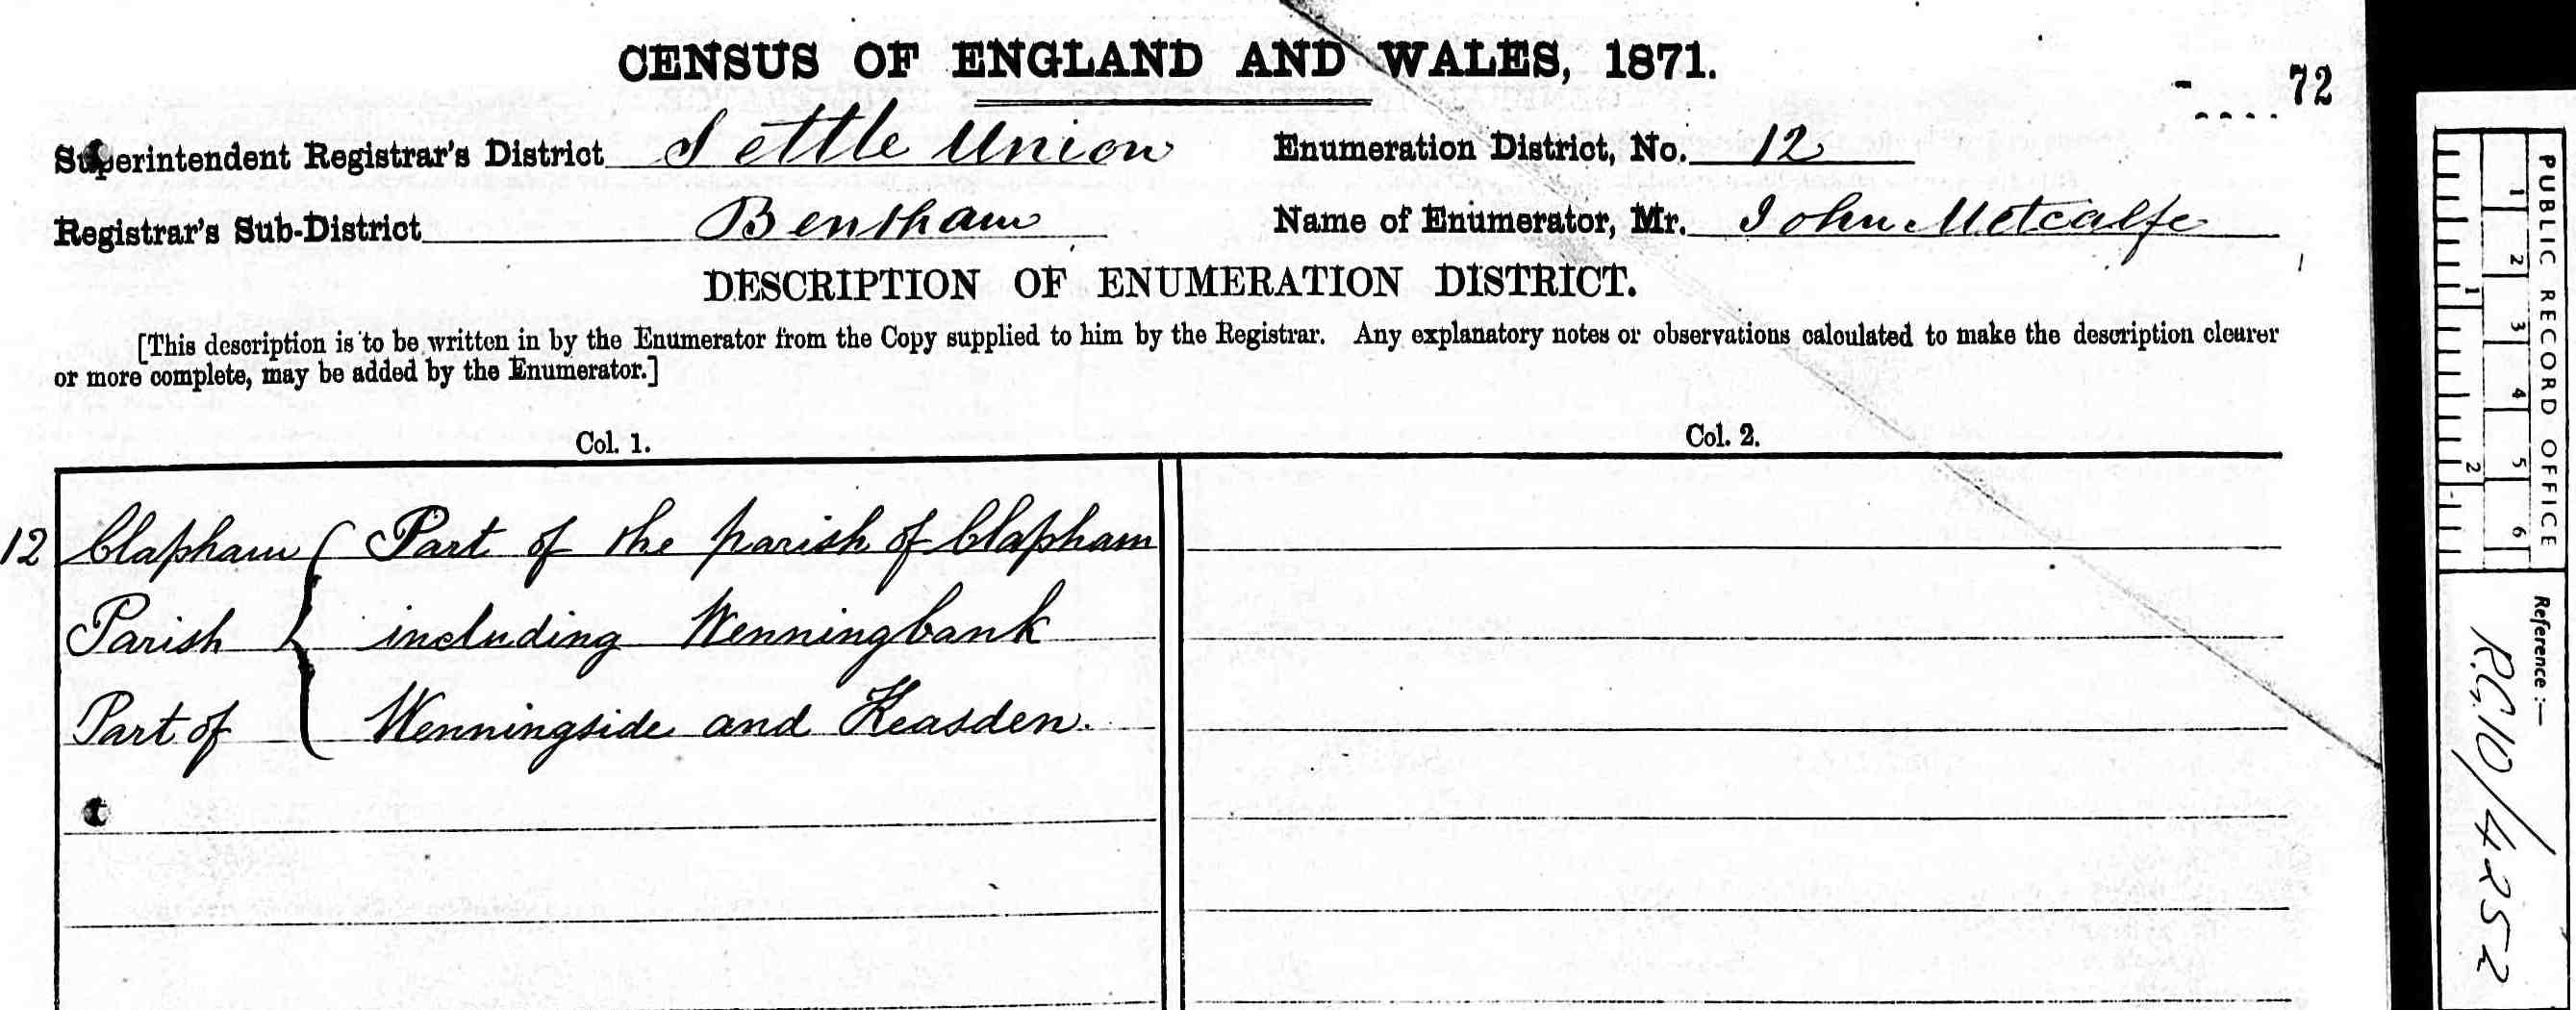 CENSUS OF ENGLAND AND WALES, 1871.
72
Superintendent Registrar's District Settle Union
Enumeration District, No. 12
Registrar's Sub-District Bentham
Name of Enumerator, Mr. John Metcalfe
DESCRIPTION OF ENUMERATION DISTRICT.
[This description is to be written in by the Enumerator from the Copy supplied to him by the Registrar. Any explanatory notes or observations calculated to make the description clearer
or more complete, may be added by the Enumerator.]
Col. 1.
Col. 2.
12 Clapham { Part of the parish of Clapham
Parish including Wenningbank
Part of Wenningside and Keasden.
PUBLIC RECORD OFFICE
1 2 3 4 5 6
1 2
Reference :—
R.G.10/4252